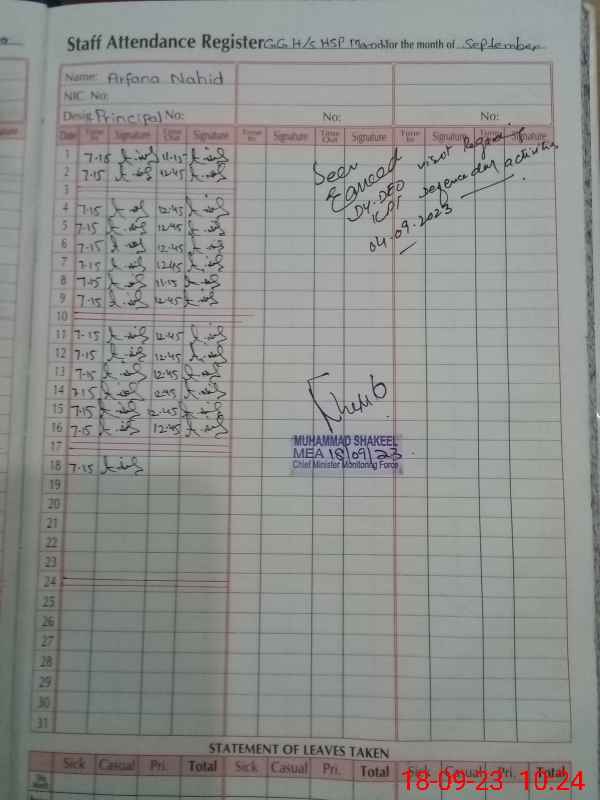 Staff Attendance Register G.G H/S HSP Mandi for the month of September
Name: Arfana Nahid
NIC. No:
Desig: Principal No: No: No:
Date Time In Signature Time Out Signature Time In Signature Time Out Signature Time In Signature Time Out Signature
1 7.15 11.15
2 7.15 12.45
3
4 7.15 12.45
5 7.15 12.45
6 7.15 12.45
7 7.15 12.45
8 7.15 11.15
9 7.15 12.45
10
11 7.15 12.45
12 7.15 12.45
13 7.15 12.45
14 7.15 12.45
15 7.15 12.45
16 7.15 12.45
17
18 7.15
19
20
21
22
23
24
25
26
27
28
29
30
31
Seen
visit
Dy. DEO
activities
04.09.2023
MUHAMMAD SHAKEEL
MEA 18/09/23
Chief Minister Monitoring Force
STATEMENT OF LEAVES TAKEN
Sick Casual Pri. Total Sick Casual Pri. Total Sick Casual Pri. Total
Month
18-09-23 10:24